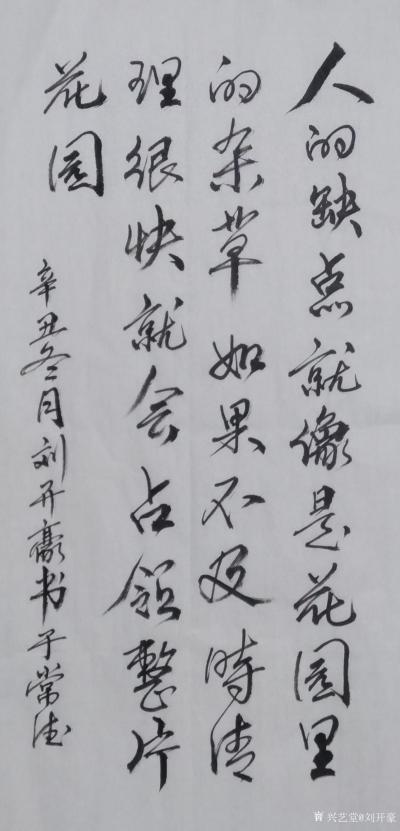 人的缺点就像是花园里
的杂草如果不及時清
理很快就会占领整片
花园
辛丑冬月刘开豪书于常德
兴艺堂@刘开豪